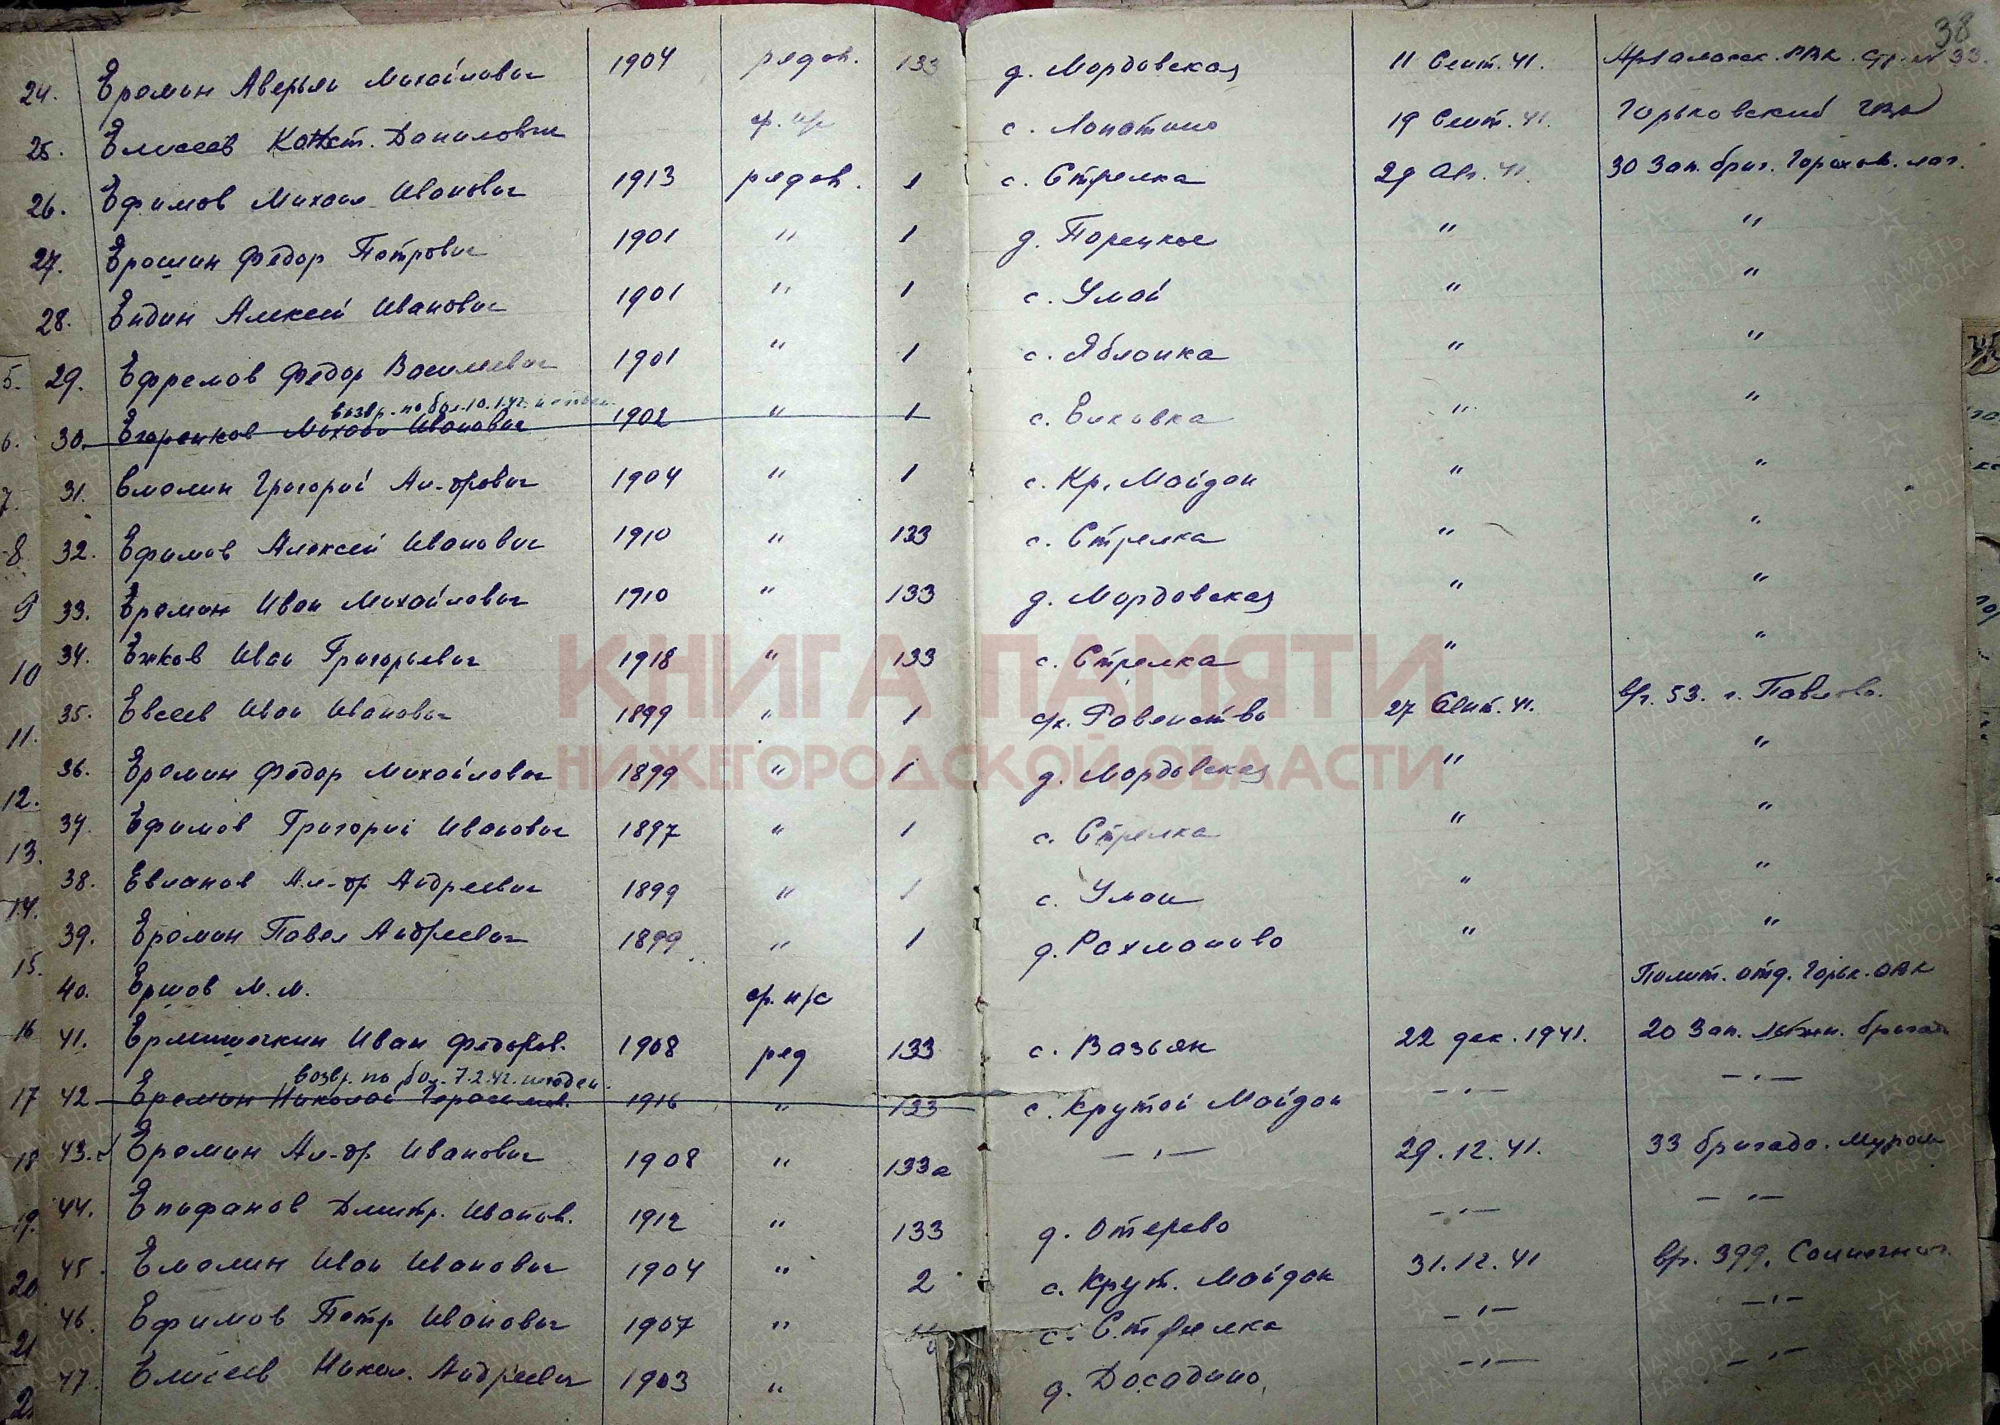 38
24. Еремин Аверьян Михайлович 1904 рядов. 133 д. Мордовская 11 Сент. 41. Арзамасск. РВК.
25. Елисеев Конст. Данилович с. Лопатино 19 Сент. 41. Горьковский
26. Ефимов Михаил Иванович 1913 рядов. 1 с. Стрелка 29 Авг. 41. 30 Зап. бриг. Горохов. лаг.
27. Ерошин Федор Петрович 1901 " 1 д. Порецкое " "
28. Елдин Алексей Иванович 1901 " 1 с. Умай " "
29. Ефремов Федор Васильевич 1901 " 1 с. Яблонка " "
возвр. по бол. 10.1.42.
30. Егоренков Михаил Иванович 1902 " 1 с. " "
31. Емолин Григорий Ал-дрович 1904 " 1 с. Кр. Майдан " "
32. Ефимов Алексей Иванович 1910 " 133 с. Стрелка " "
33. Еремин Иван Михайлович 1910 " 133 д. Мордовская " "
34. Ежков Иван Григорьевич 1918 " 133 с. Стрелка " "
35. Евсеев Иван Иванович 1899 " 1 Равенство 27 Сент. 41. в/ч. 53. г. Павлово.
36. Еремин Федор Михайлович 1899 " 1 д. Мордовская " "
37. Ефимов Григорий Иванович 1897 " 1 с. Стрелка " "
38. Евланов Ал-др Андреевич 1899 " 1 с. Умай " "
39. Еремин Павел Андреевич 1899 " 1 д. Рахманово " "
40. Ершов М.М. ср. н/с Полит. отд. Горьк. ОВК
41. Ермишечкин Иван Федоров. 1908 ряд 133 с. Вазьян 22 дек. 1941. 20 Зап. лыжн. бригад
возвр. по бол. 7.2.42.
42 Еремин Николай Герасимов. 1916 " 133 с. Крутой Майдан —"— —"—
43. Еремин Ал-др Иванович 1908 " 133а —"— 29.12.41. 33 бригада. Муром
44. Епифанов Дмитр. Иванов. 1912 " 133 д. Отерево —"— —"—
45. Емолин Иван Иванович 1904 " 2 с. Крут. Майдан 31.12.41 в/ч. 399.
46. Ефимов Петр Иванович 1907 " с. Стрелка —"— —"—
47. Елисеев Никол. Андреевич 1903 " д. Досадино. —"— —"—
5.
6.
7.
8
9
10
11.
12.
13.
14.
15.
16
17
18
19.
20
21
КНИГА ПАМЯТИ
НИЖЕГОРОДСКОЙ ОБЛАСТИ
ПАМЯТЬ НАРОДА